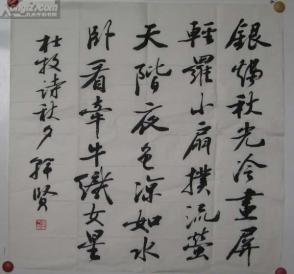 銀燭秋光冷畫屏
輕羅小扇撲流螢
天階夜色涼如水
卧看牽牛織女星
杜牧诗秋夕